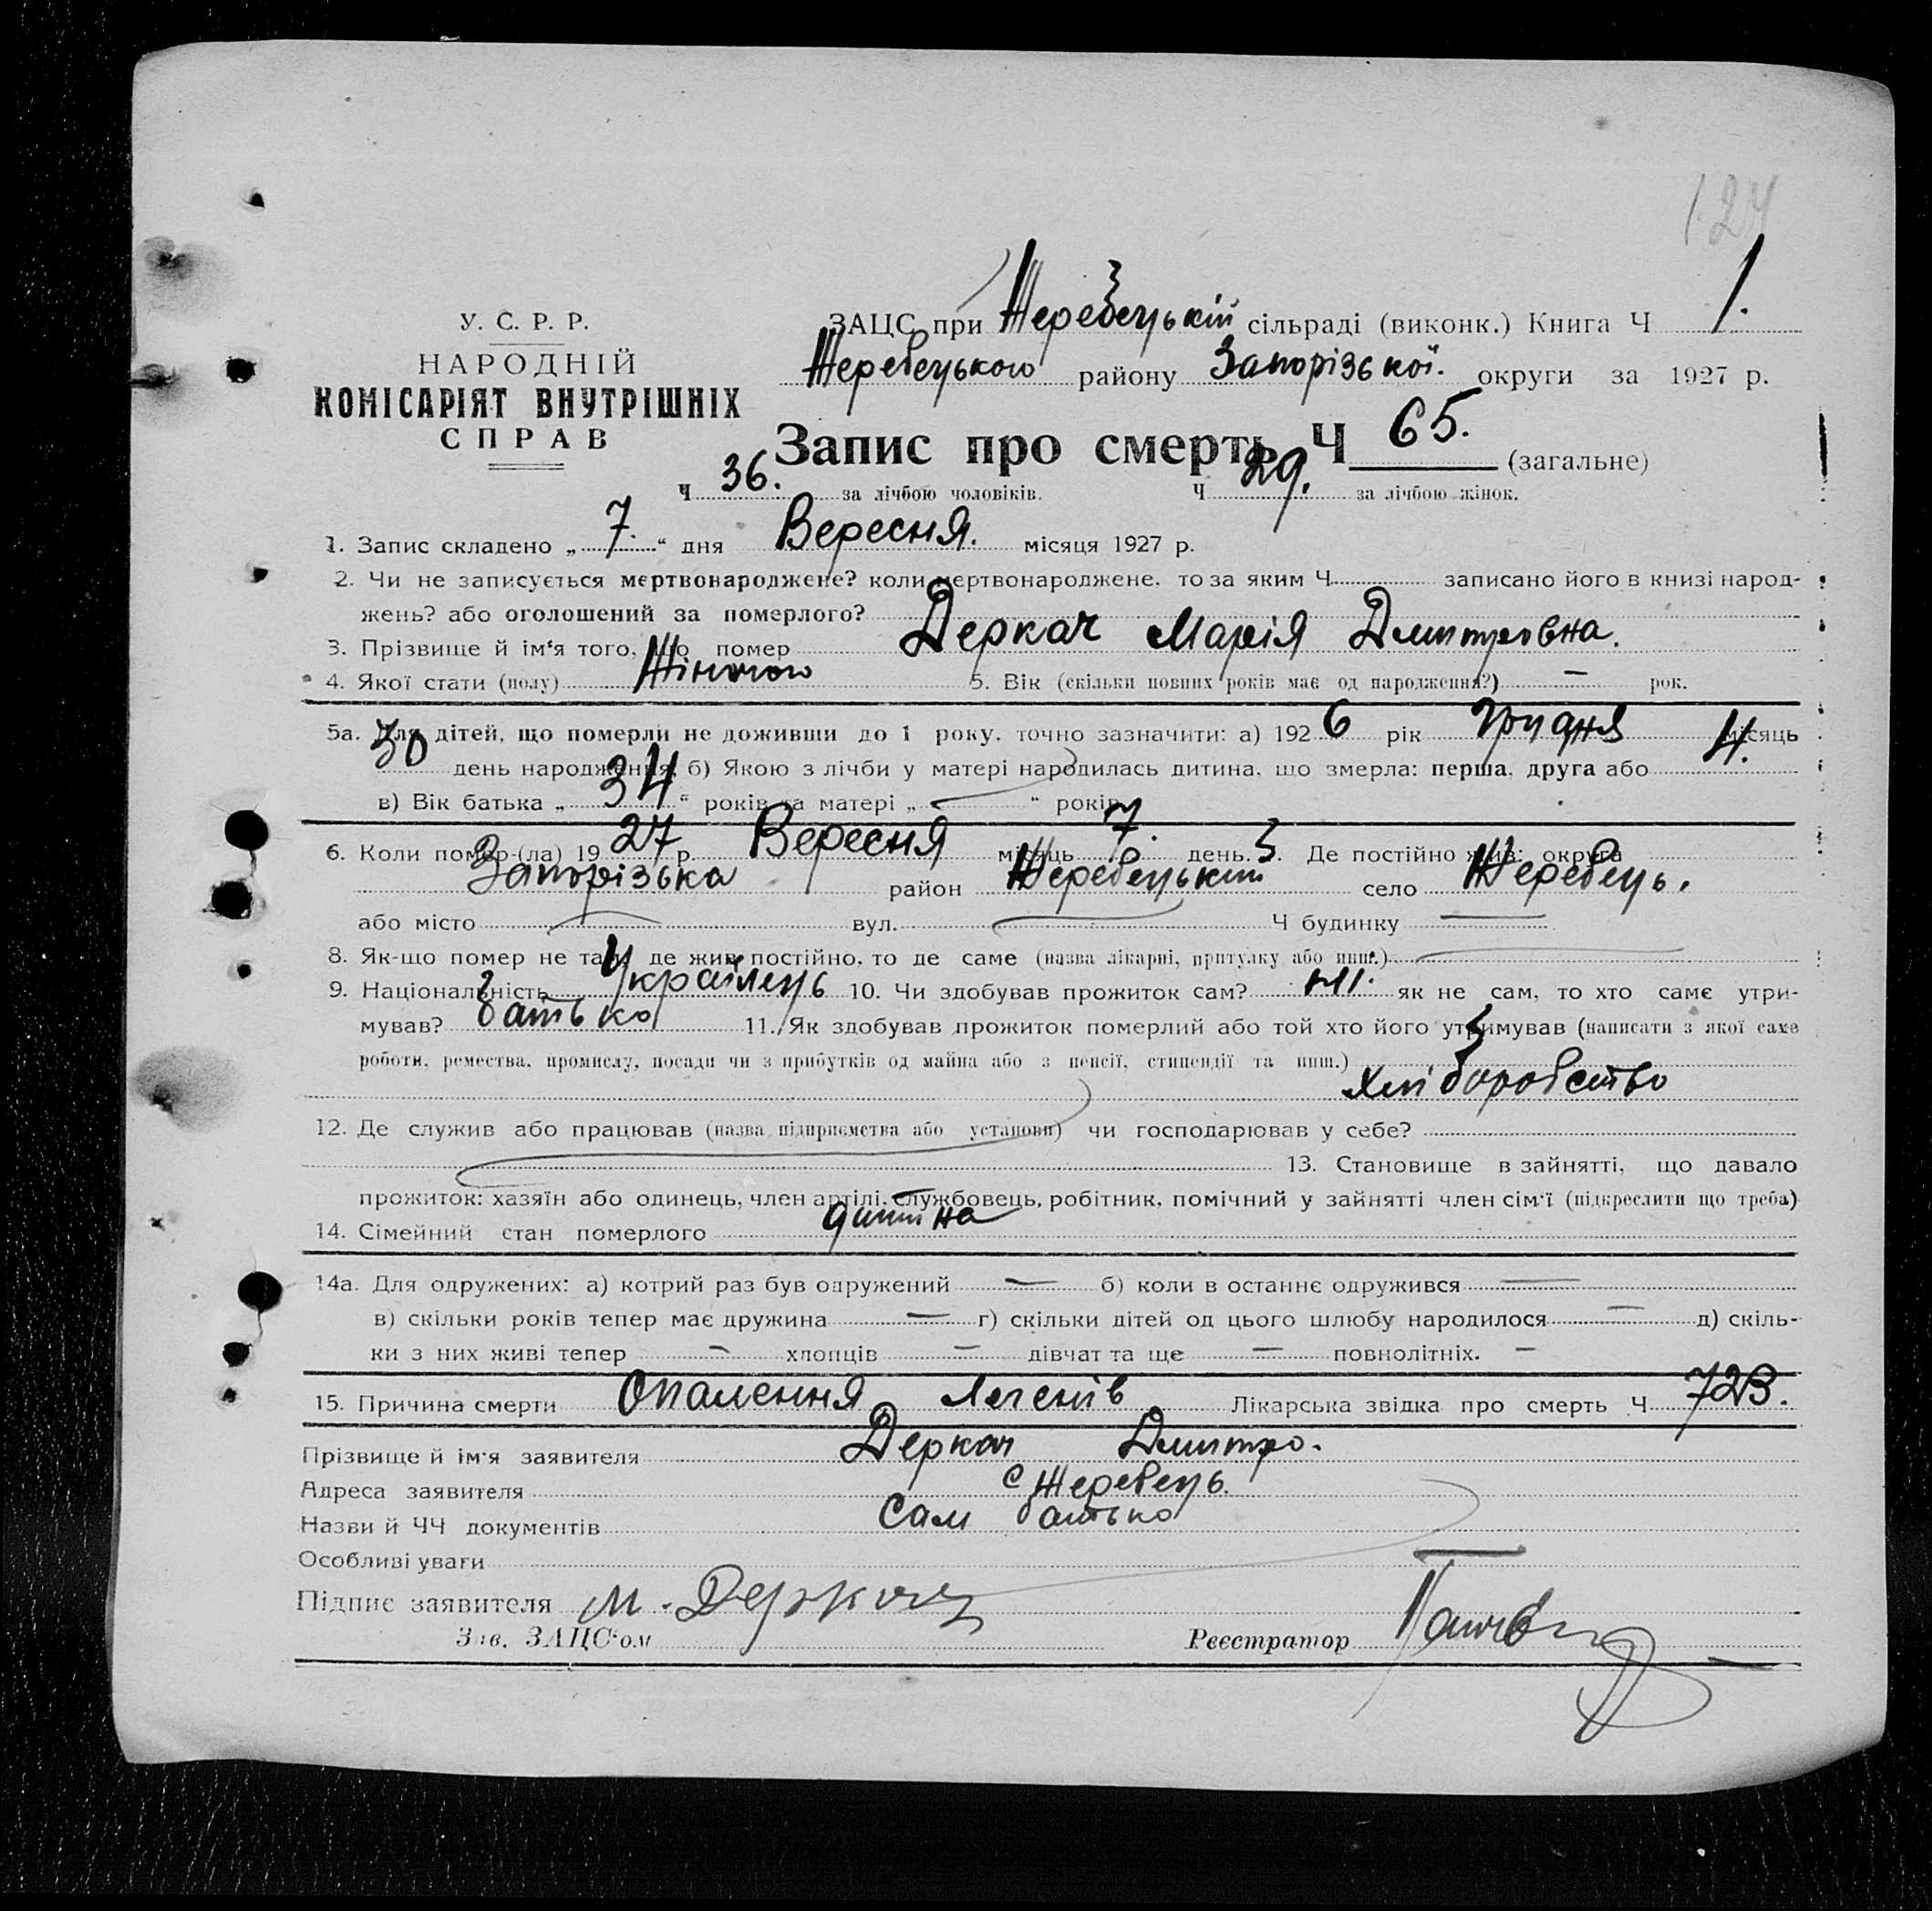 124
У. С. Р. Р.
НАРОДНІЙ
КОМІСАРІЯТ ВНУТРІШНІХ
СПРАВ
ЗАЦС при Жеребецькій сільраді (виконк.) Книга Ч 1.
Жеребецького району Запорізької. округи за 1927 р.
Запис про смерть Ч 65. (загальне)
Ч 36. за лічбою чоловіків. Ч 29. за лічбою жінок.
1. Запис складено „ 7. “ дня Вересня. місяця 1927 р.
2. Чи не записується мертвонароджене? коли мертвонароджене, то за яким Ч записано його в книзі народ-
жень? або оголошений за померлого?
3. Прізвище й ім‘я того, що помер Деркач Марія Дмитровна.
4. Якої стати (полу) Жіночого 5. Вік (скільки повних років має од народження?) — рок.
5а. Для дітей, що померли не доживши до 1 року, точно зазначити: а) 1926 рік Грудня місяць
30 день народження, б) Якою з лічби у матері народилась дитина, що змерла: перша, друга або 4.
в) Вік батька „ 34 “ років та матері „ — “ років
6. Коли помер-(ла) 1927 р. Вересня місяць 7. день. Де постійно жив: округа
Запорізька район Жеребецький село Жеребець.
або місто — вул. — Ч будинку —
8. Як-що помер не там, де жив постійно, то де саме (назва лікарні, притулку або инш.) —
9. Національність Українець 10. Чи здобував прожиток сам? ні. як не сам, то хто саме утри-
мував? батько 11. Як здобував прожиток померлий або той хто його утримував (написати з якої саме
роботи, ремества, промислу, посади чи з прибутків од майна або з пенсії, стипендії та инш.)
хліборобство
12. Де служив або працював (назва підприємства або установи) чи господарював у себе?
13. Становище в зайнятті, що давало
прожиток: хазяїн або одинець, член артілі, службовець, робітник, помічний у зайнятті член сім‘ї (підкреслити що треба)
14. Сімейний стан померлого дитина
14а. Для одружених: а) котрий раз був одружений — б) коли в останнє одружився —
в) скільки років тепер має дружина — г) скільки дітей од цього шлюбу народилося — д) скіль-
ки з них живі тепер — хлопців — дівчат та ще — повнолітніх. —
15. Причина смерти Опалення легенів Лікарська звідка про смерть Ч 723.
Прізвище й ім‘я заявителя Деркач Дмитро.
Адреса заявителя с Жеребець.
Назви й ЧЧ документів Сам батько
Особливі уваги
Підпис заявителя М. Деркач
Зав. ЗАЦС‘ом Реєстратор